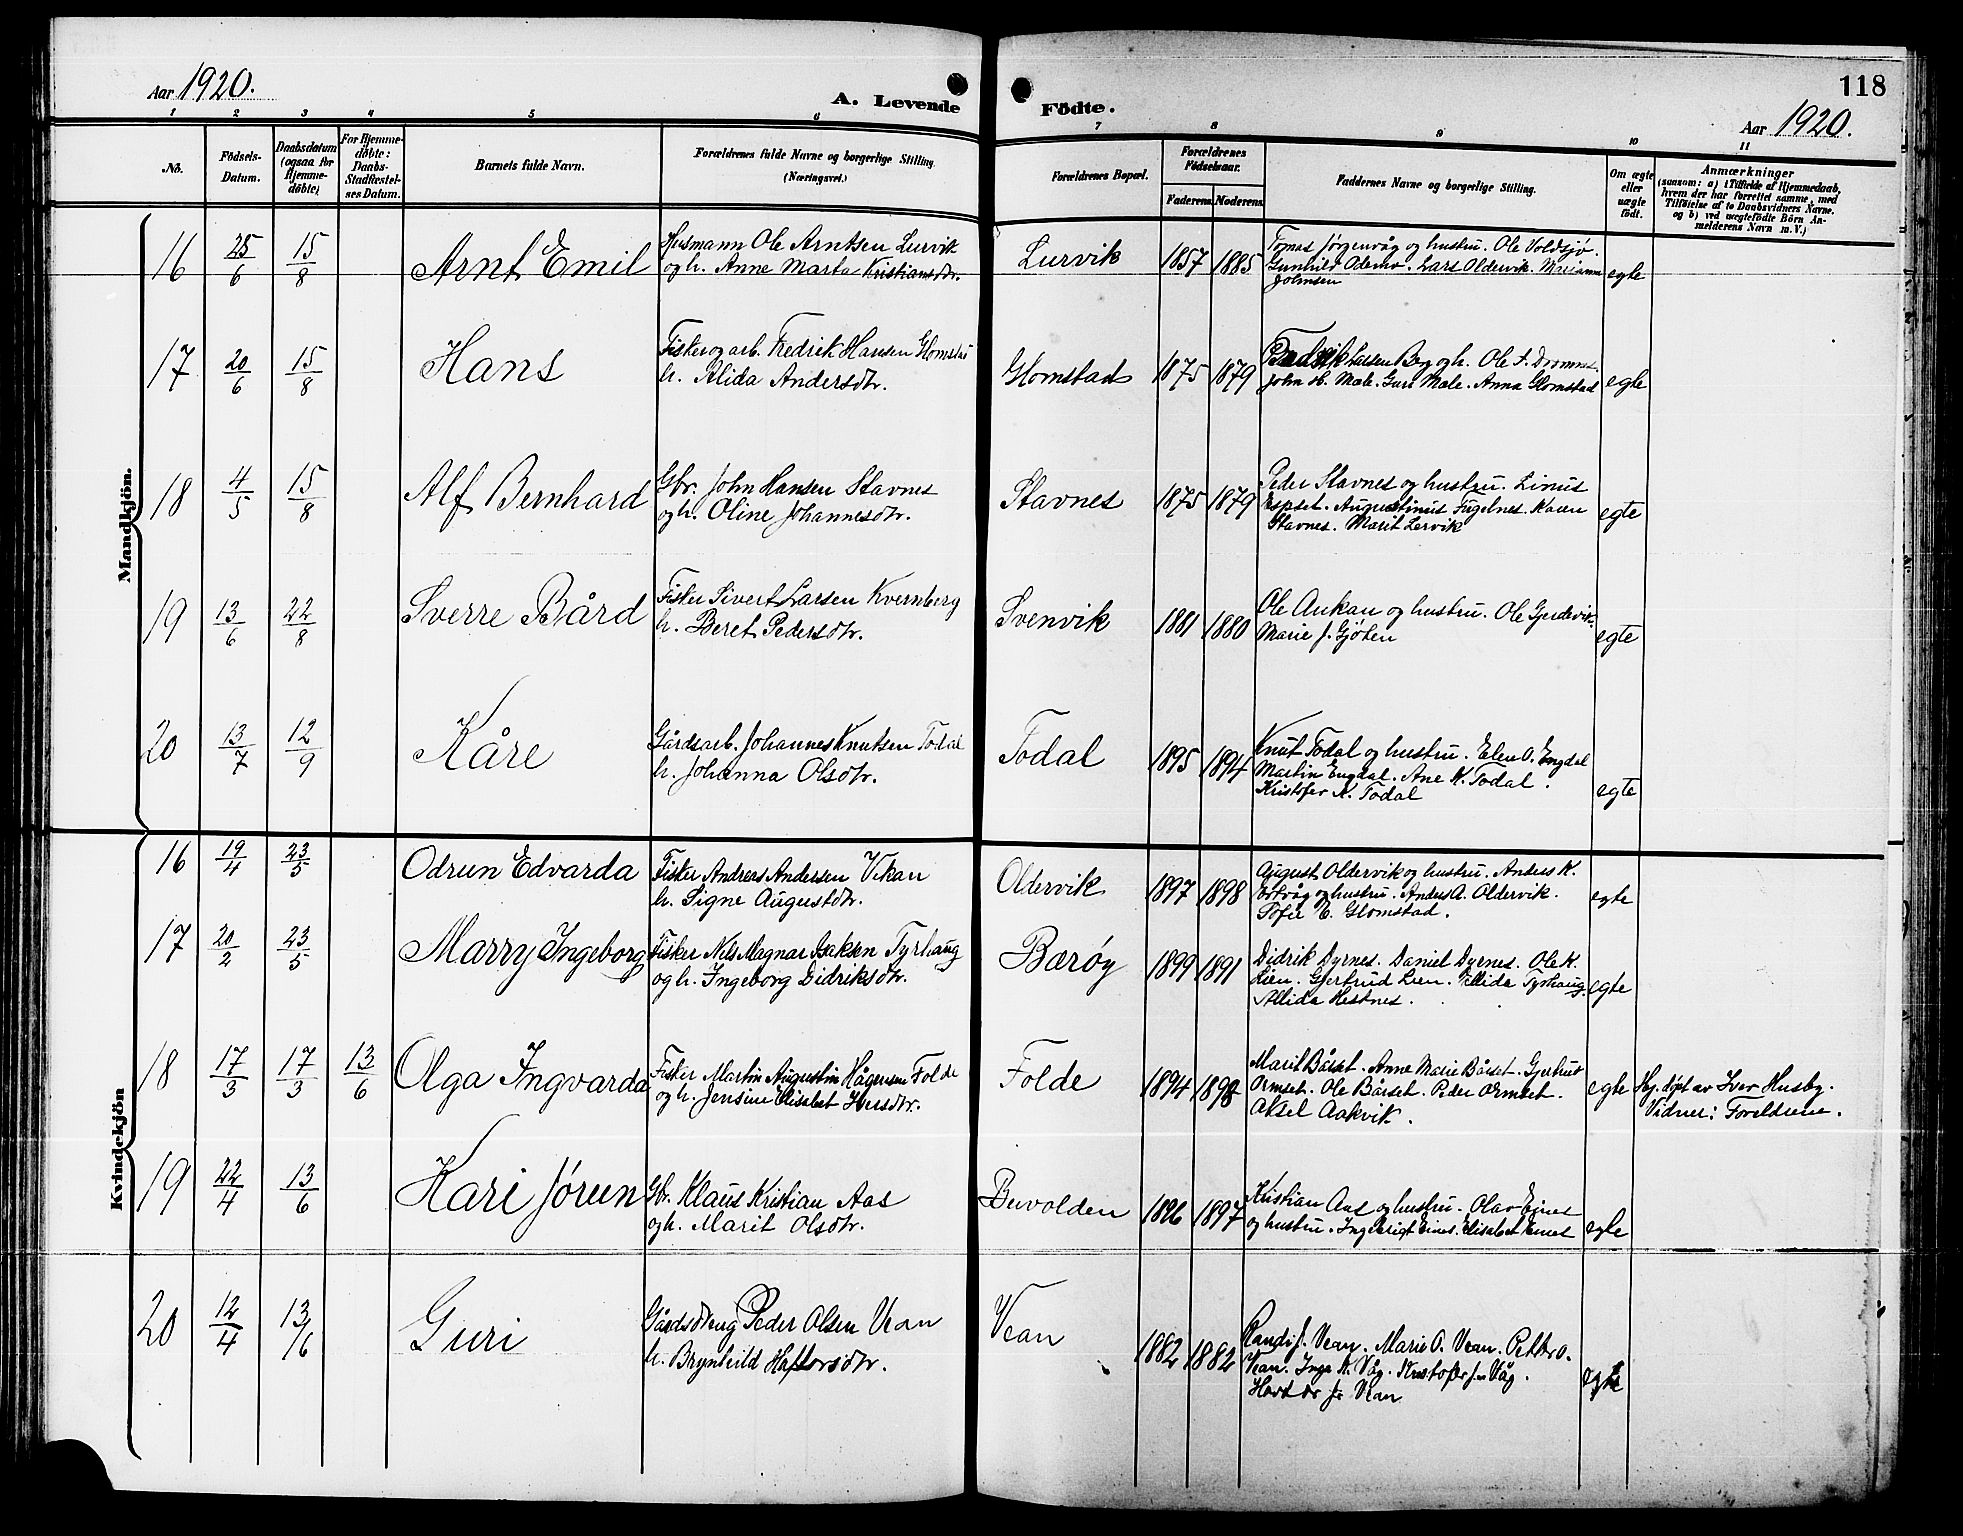 Aar 1920.
A. Levende Födte.
118
Aar 1920.
1 2 3 4 5 6 7 8 9 10 11
No.
Fødsels-
Datum.
Daabsdatum
(ogsaa for
Hjemme-
døbte)
For Hjemme-
døbte:
Daabs-
Stadfæstel-
ses Datum.
Barnets fulde Navn.
Forældrenes fulde Navne og borgerlige Stilling.
(Næringsvei.)
Forældrenes Bopæl.
Forældrenes
Fødselsaar.
Faderens. Moderens.
Faddernes Navne og borgerlige Stilling.
Om ægte
eller
uægte
født.
Anmærkninger
(saasom: a) i Tilfælde af Hjemmedaab,
hvem der har forrettet samme, med
Tilføielse af to Daabsvidners Navne,
og b) ved uægtefødte Börn An-
melderens Navn m. V.)
Mandkjön.
16 25/6 15/8 Arnt Emil
Husmann Ole Arntsen Lurvik
og h. Anne Marta Kristiansdtr.
Lurvik 1857 1885
Tomas Jørgenvåg og hustru. Ole Voldsjø.
Gunhild Odemo. Lars Oldervik. Marianne
Johnsen
egte
17 20/6 15/8 Hans
Fisker og arb. Fredrik Hansen Glomstad
h. Alida Andersdtr.
Glomstad 1875 1879
Fredrik Larsen Berg og h. Ole I. Drommes.
John H. Mæle. Guri Mæle. Anna Glomstad
egte
18 4/5 15/8 Alf Bernhard
Gbr. John Hansen Stavnes
og h. Oline Johannesdtr.
Stavnes 1875 1879
Peder Stavnes og hustru. Linus
Espset. Augustinus Fugelnes. Karen
Stavnes. Marit Lervik
egte
19 13/6 22/8 Sverre Bård
Fisker Sivert Larsen Kvernberg
h. Beret Pedersdtr.
Svenvik 1881 1880
Ole Aukan og hustru. Ole Gjerdevik.
Marie J. Gjøten
egte
20 13/7 12/9 Kåre
Gårdsarb. Johannes Knutsen Todal
h. Johanna Olsdtr.
Todal 1895 1894
Knut Todal og hustru. Elen O. Engdal
Martin Engdal. Ane K. Todal.
Kristofer K. Todal
egte
Kvindekjön
16 19/4 23/5 Odrun Edvarda
Fisker Andreas Andersen Vikan
h. Signe Augustdtr.
Oldervik 1897 1898
August Oldervik og hustru. Anders K.
Ørtvåg og hustru. Anders A. Oldervik.
Tofie E. Glomstad.
egte
17 20/2 23/5 Marry Ingeborg
Fisker Nils Magnar Isaksen Tyrhaug
og h. Ingeborg Didriksdtr.
Bærøy 1899 1891
Didrik Dyrnes. Daniel Dyrnes. Ole K.
Lien. Gjertrud Lien. Alida Tyrhaug.
Allida Hestnes.
egte
18 17/3 17/3 13/6 Olga Ingvarda
Fisker Martin Augustin Hågensen Folde
og h. Jensine Elisabet Iversdtr.
Folde 1894 1898
Marit Bårset. Anne Marie Bårset. Gjertrud
Ormset. Ole Bårset. Peder Ormset.
Aksel Aakvik.
egte
Hj. døpt av Iver Husby.
Vidner: Foreldrene.
19 22/4 13/6 Kari Jørun
Gbr. Klaus Kristian Aas
og h. Marit Olsdtr.
Buvolden 1896 1897
Kristian Aas og hustru. Olav Eines
og hustru. Ingebrigt Eines. Elisabet Eines
egte
20 12/4 13/6 Guri
Gårdsdreng Peder Olsen Vean
h. Brynhild Haftorsdtr.
Vean 1882 1882
Randi J. Vean. Marie O. Vean. Petter O.
Vean. Inga K. Våg. Kristofer J. Våg.
Havtor J. Vean
egte